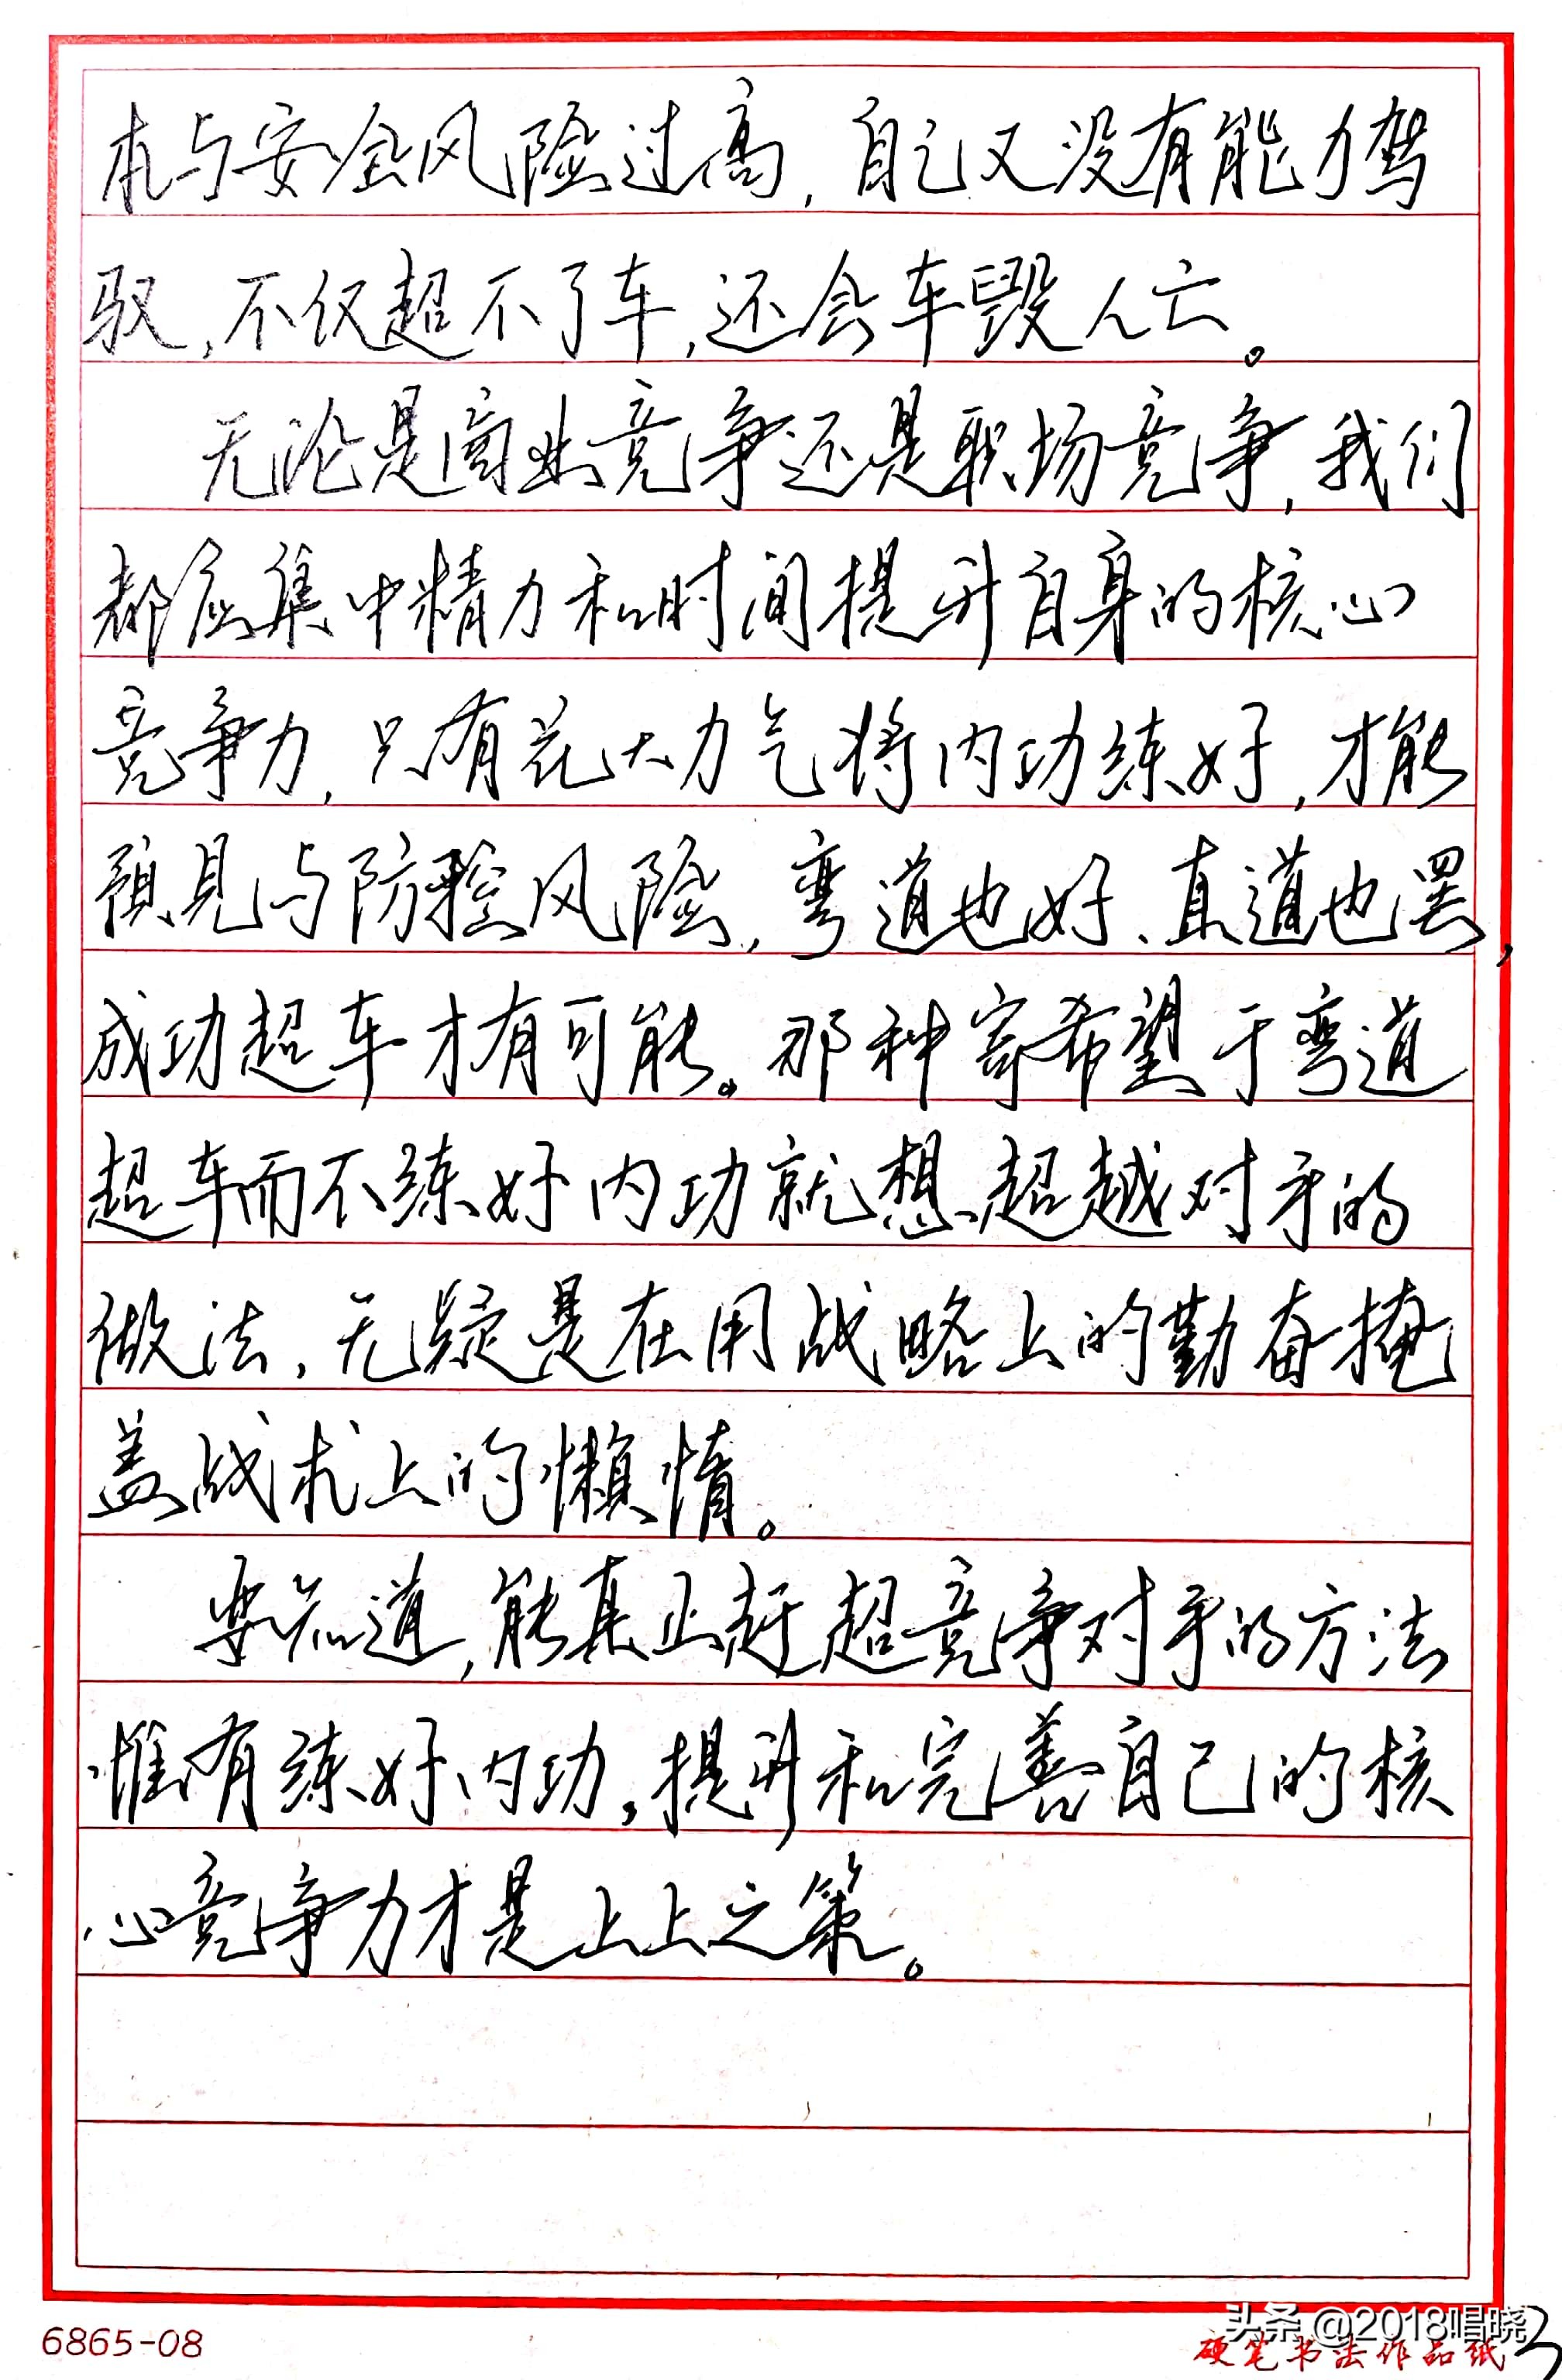 本与安全风险过高,自己又没有能力驾
驭,不仅超不了车,还会车毁人亡。
无论是商业竞争还是职场竞争,我们
都应集中精力和时间提升自身的核心
竞争力,只有花大力气将内功练好,才能
预见与防控风险,弯道也好、直道也罢,
成功超车才有可能。那种寄希望于弯道
超车而不练好内功就想超越对手的
做法,无疑是在用战略上的勤奋掩
盖战术上的懒惰。
要知道,能真正赶超竞争对手的方法
惟有练好内功,提升和完善自己的核
心竞争力才是上上之策。
6865-08
硬笔书法作品纸
头条@2018唱晓
3